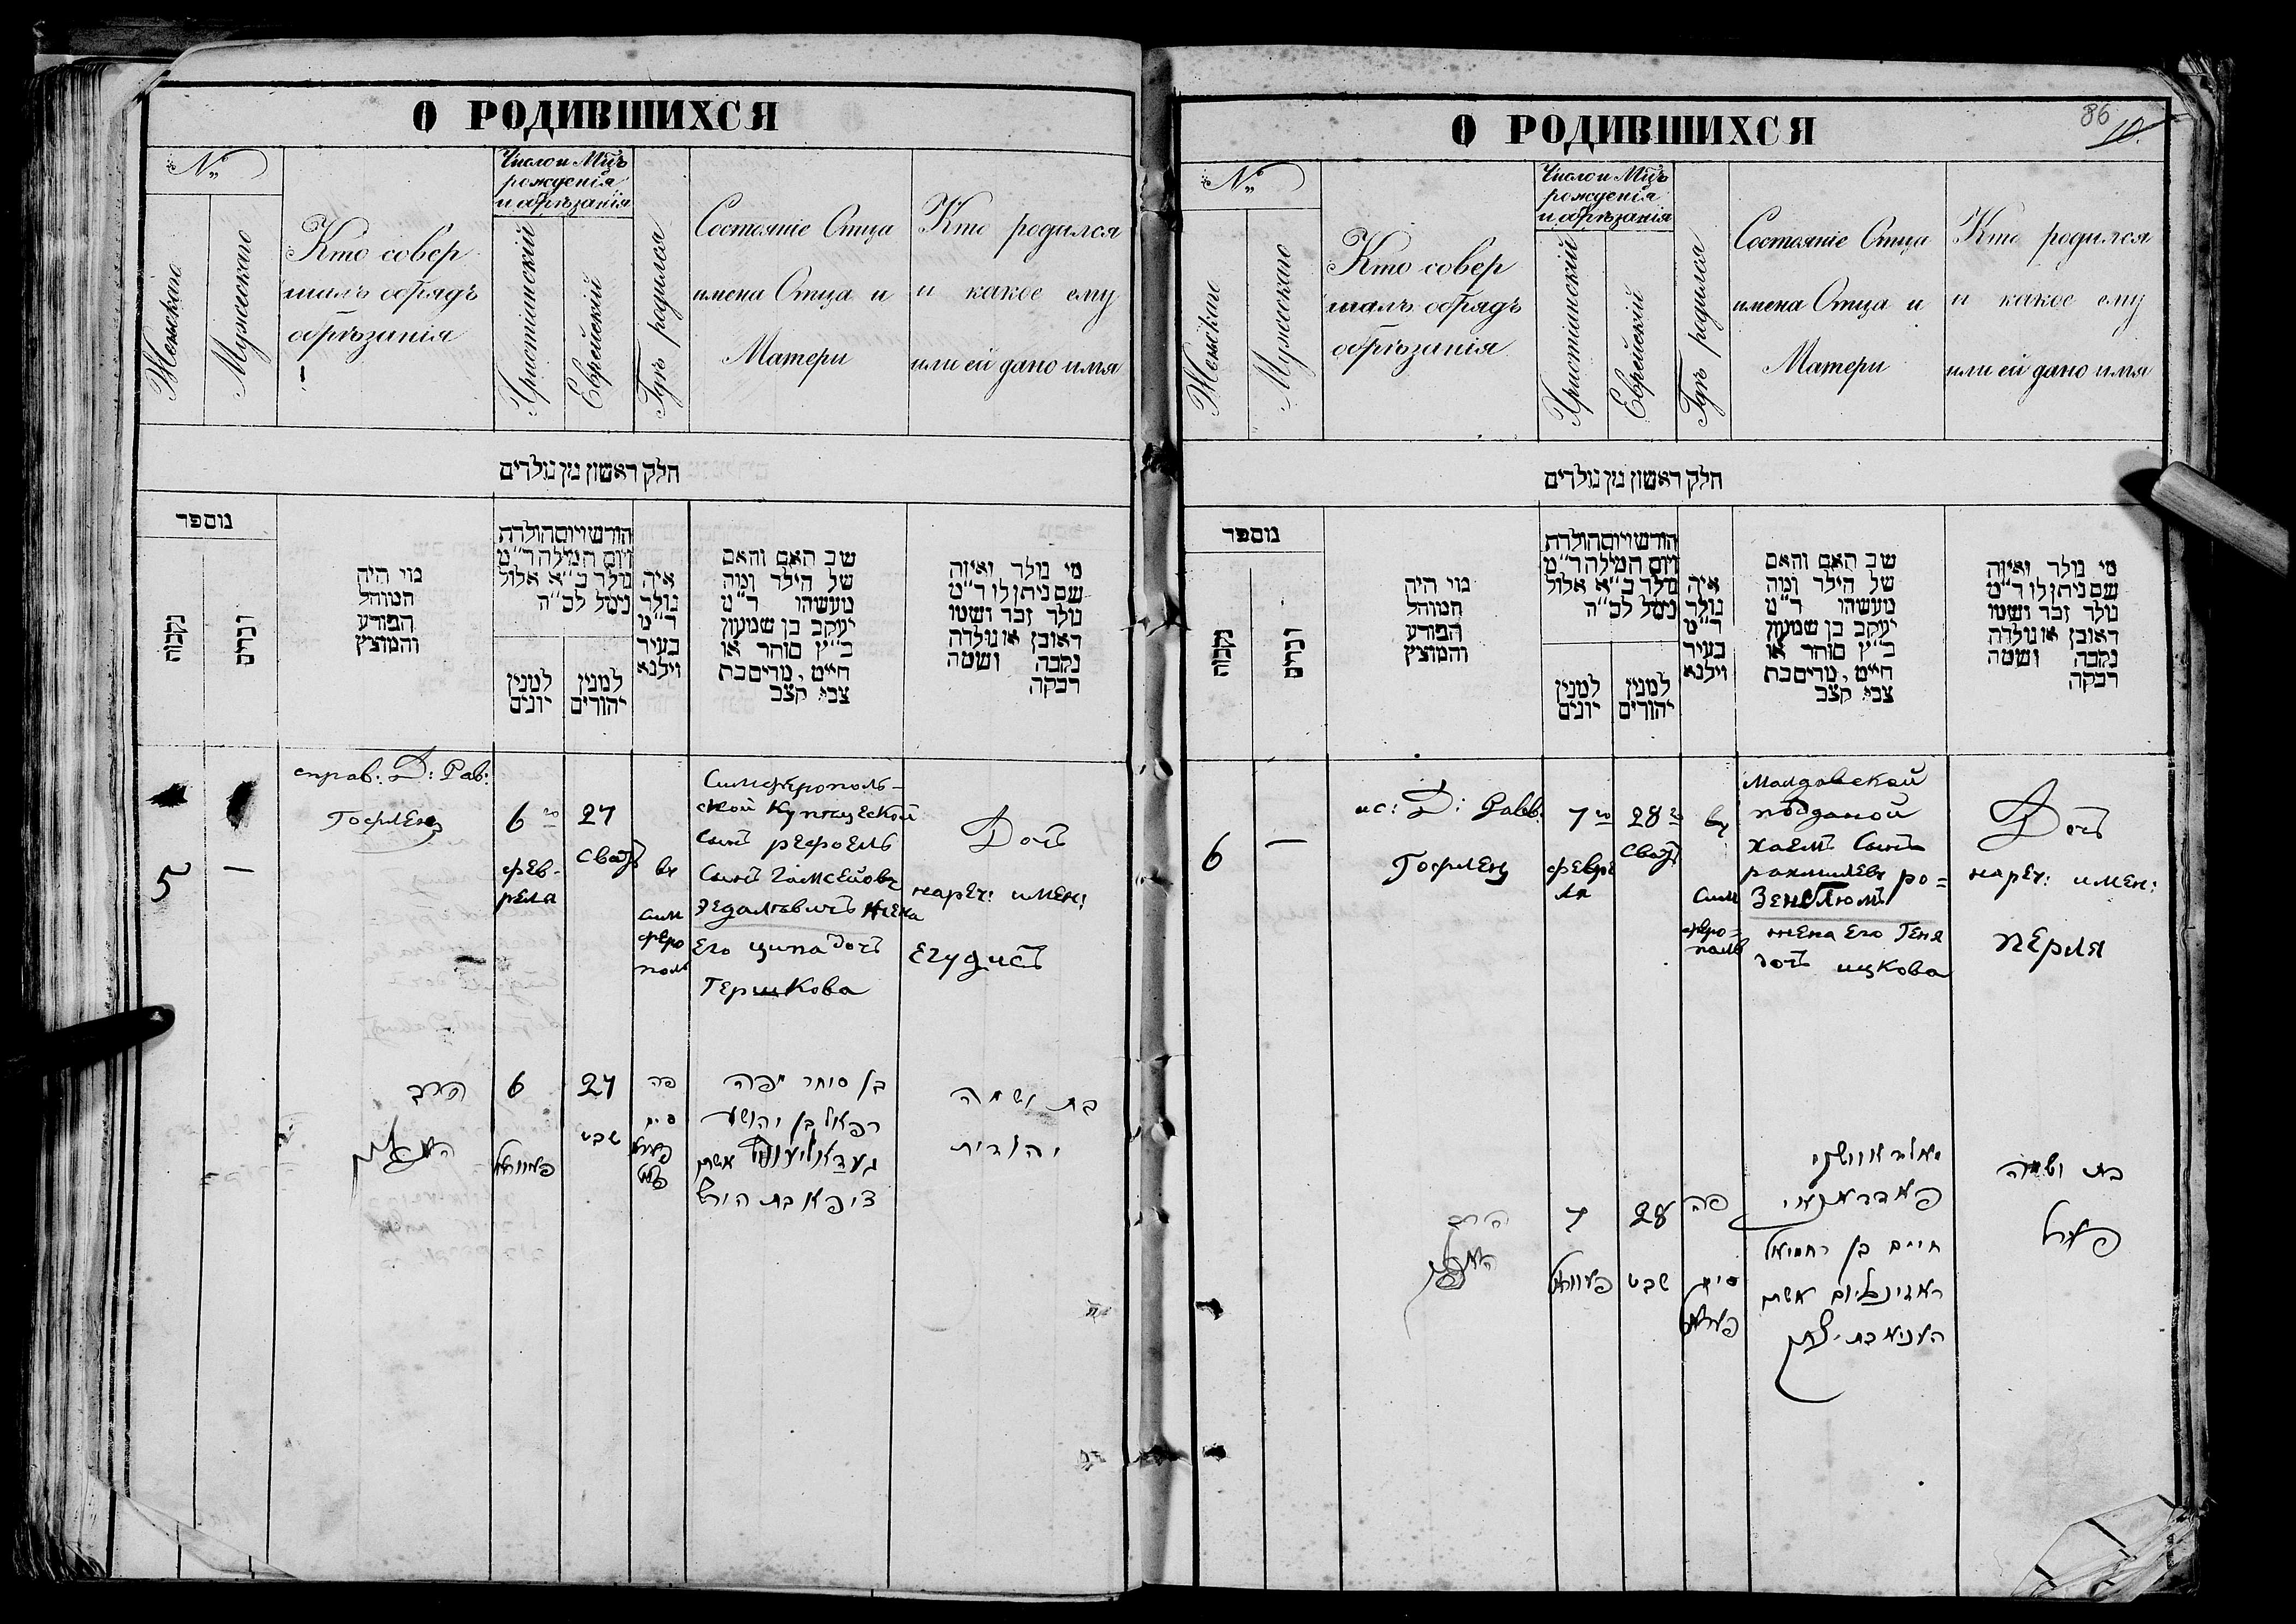 О РОДИВШИХСЯ
№
Женскаго
Мужескаго
Кто совер
шалъ обрядъ
обрѣзанія
Число и Мцъ
рожденія
и обрѣзанія
Христіанскій
Еврейскій
Гдѣ родился
Состояніе Отца
имена Отца и
Матери
Кто родился
и какое ему
или ей дано имя
חלק ראשון מן נולדים
מספר
נקבות
זכרים
מי היה
המוהל
הפורע
והמוצץ
חודש ויום הולדת
ויום המילה ד״מ
נולד כ״א אלול
נימל לכ״ה
למנין
יונים
למנין
יהודים
איה
נולד
ד״מ
בעיר
וילנא
שב האם והאם
של הילד ומה
מעשהו ד״מ
יעקב בן שמעון
כ״ץ סוחר או
חייט, מרים בת
צבי קצב
מי נולד ואיזה
שם ניתן לו ד״מ
נולד זכר ושמו
ראובן או נולדה
נקבה ושמה
רבקה
5
—
справ: Д: Рав:
Гофленц
6 го
фев-
рела
27
сватъ
въ
сим
феро
поль
Симферополь-
ской Купицеской
сынъ рефоель
сынъ
жена
его ципа дочъ
Гершкова
Дочъ
нареч: имен:
егудисъ
הרב
6
27
שבט
פה
סימ
בן סוחר
רפאל בן יהושע
אשתו
ציפא בת הירש
בת ושמה
יהודית
О РОДИВШИХСЯ
86
10.
№
Женскаго
Мужескаго
Кто совер
шалъ обрядъ
обрѣзанія
Число и Мцъ
рожденія
и обрѣзанія
Христіанскій
Еврейскій
Гдѣ родился
Состояніе Отца
имена Отца и
Матери
Кто родился
и какое ему
или ей дано имя
חלק ראשון מן נולדים
מספר
נקבות
זכרים
מי היה
המוהל
הפורע
והמוצץ
חודש ויום הולדת
ויום המילה ד״מ
נולד כ״א אלול
נימל לכ״ה
למנין
יונים
למנין
יהודים
איה
נולד
ד״מ
בעיר
וילנא
שב האם והאם
של הילד ומה
מעשהו ד״מ
יעקב בן שמעון
כ״ץ סוחר או
חייט, מרים בת
צבי קצב
מי נולד ואיזה
שם ניתן לו ד״מ
נולד זכר ושמו
ראובן או נולדה
נקבה ושמה
רבקה
6
—
ис: Д: Равв:
Гофленц
7 го
февре
ля
28 го
сватъ
въ
сим
феро=
поль
Малдавской
подданой
хаемъ сынъ
рахмилевъ ро=
зенблюмъ
жена его Геня
дочъ ицкова
Дочъ
нареч: имен:
перля
הרב
7
28
שבט
פה
סימ
חיים בן רחמיאל
ראזינבליום אשתו
העניא בת
בת ושמה
פערל